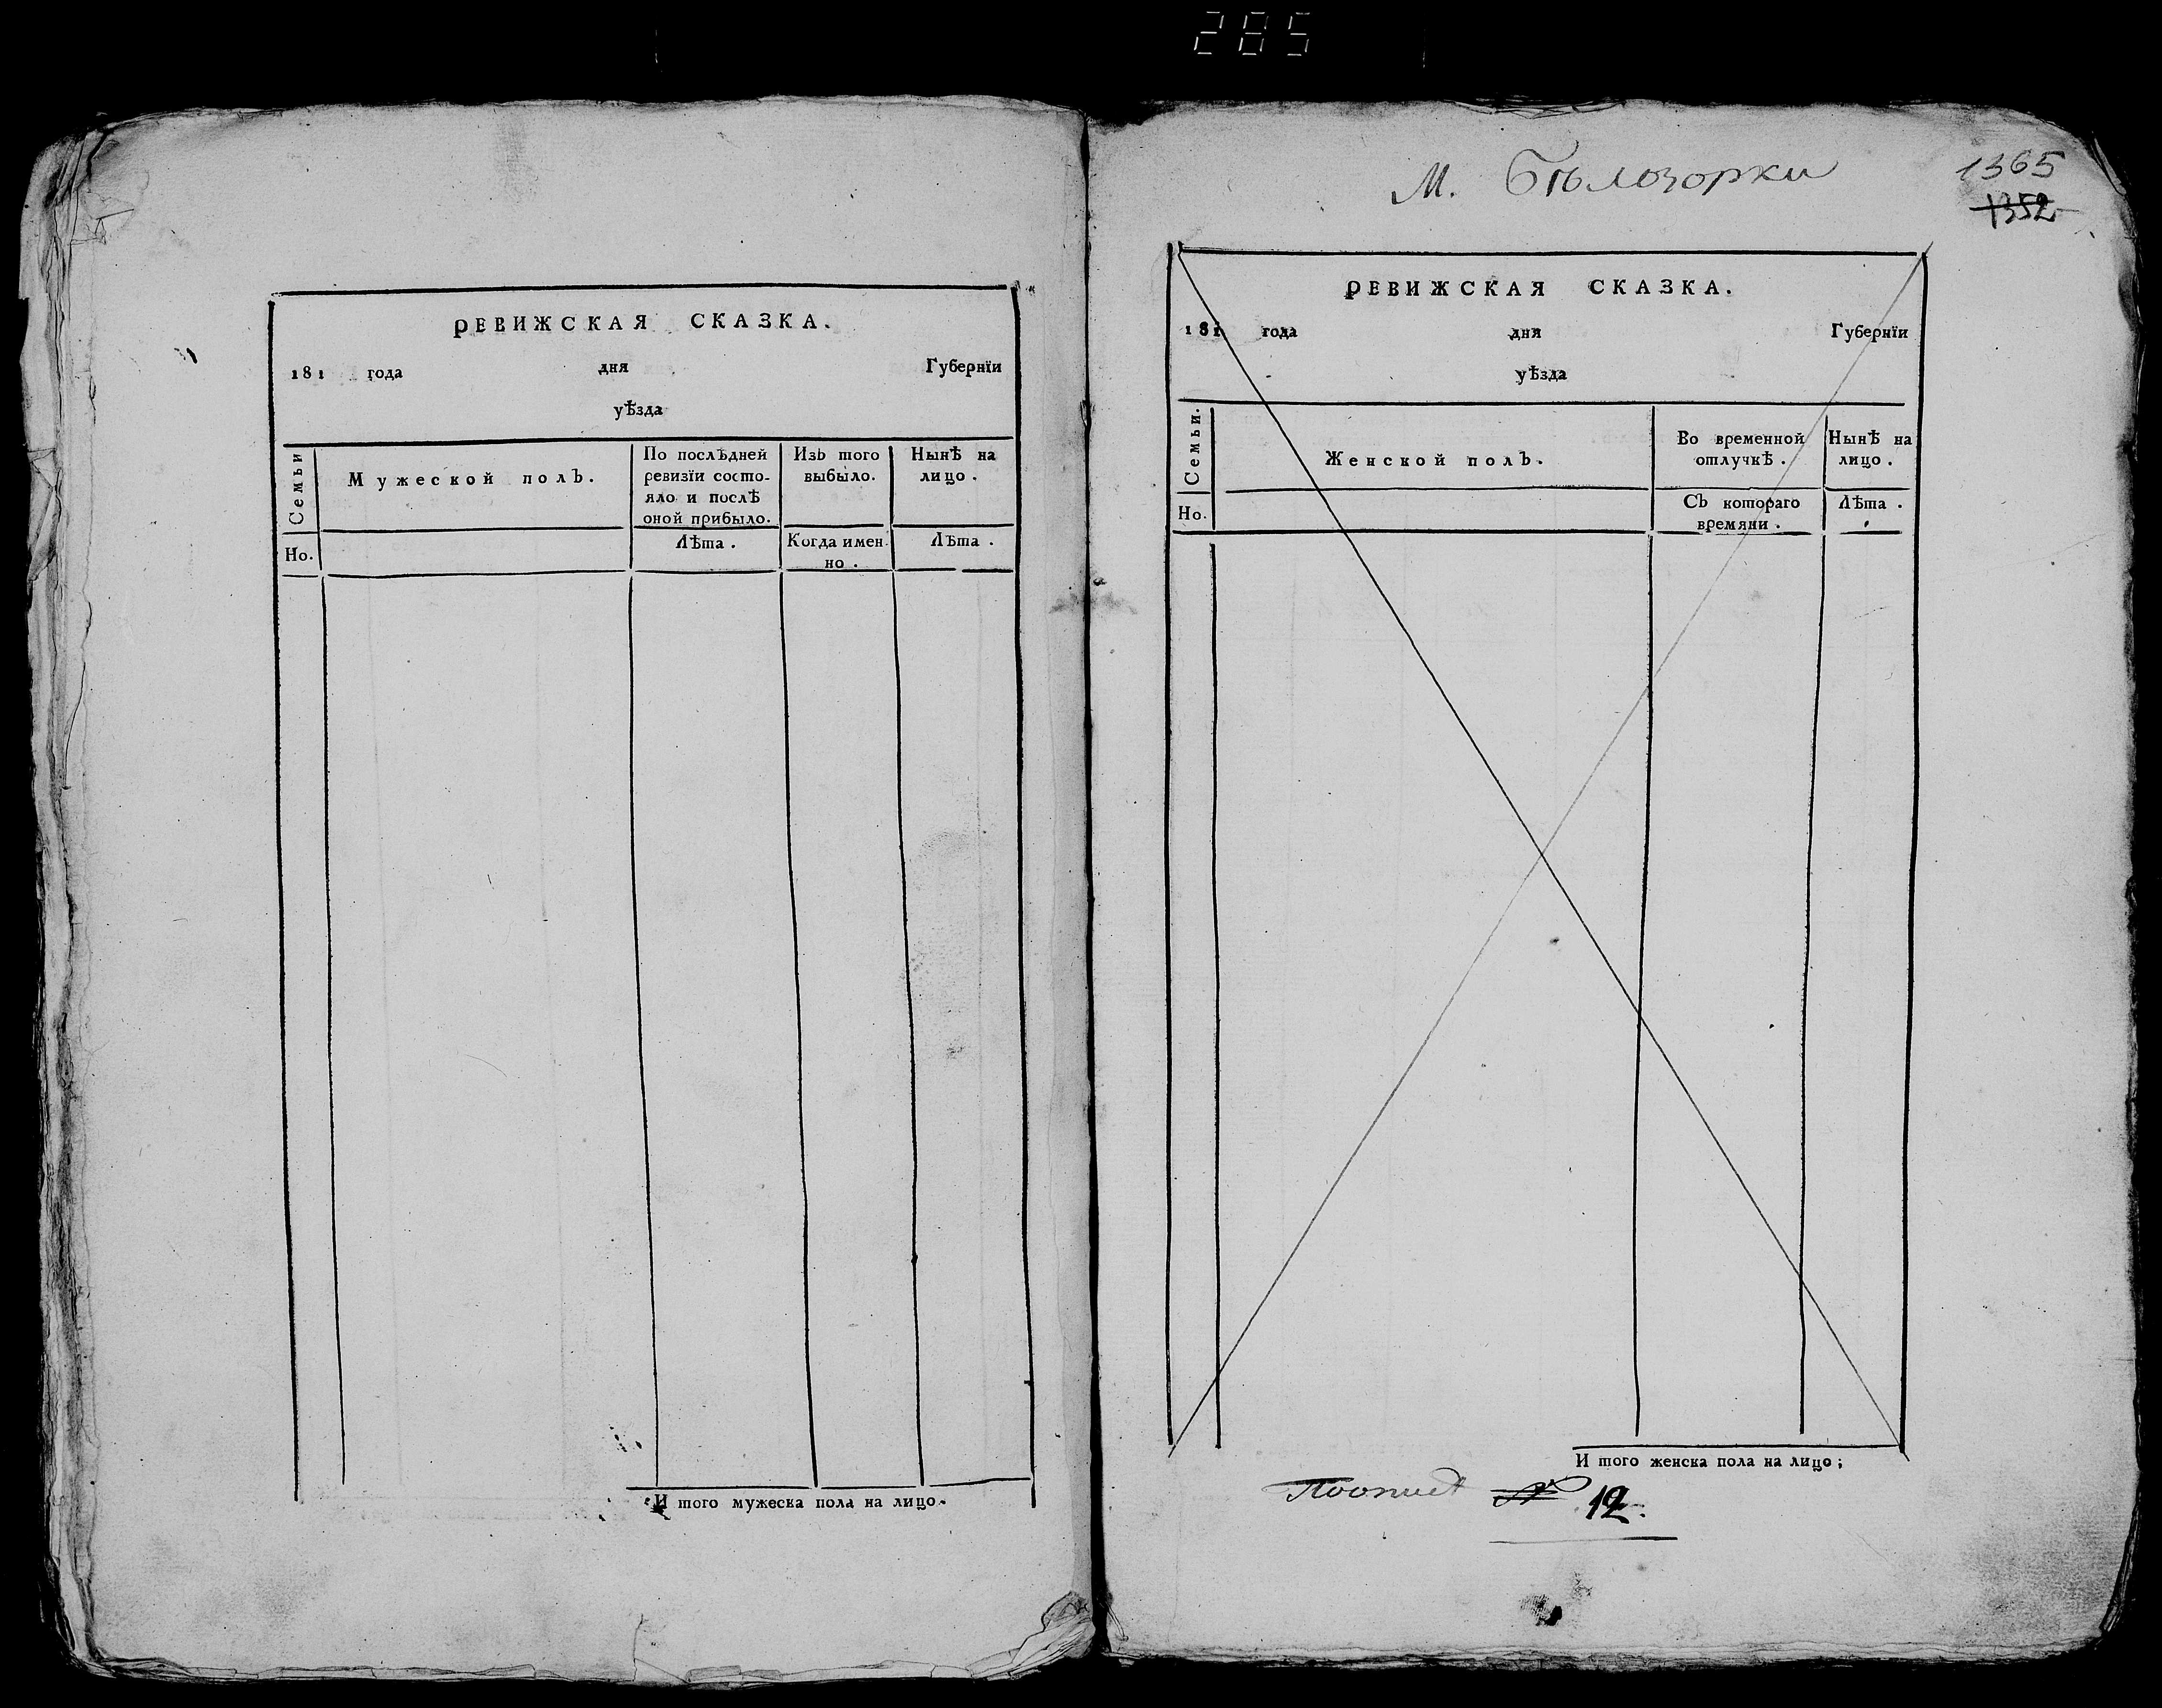 285
РЕВИЖСКАЯ СКАЗКА.
181 года дня Губернїи
уѣзда
Семьи
Мужеской полъ.
По послѣдней ревизїи состо-
яло и послѣ
оной прибыло.
Изъ того
выбыло.
Нынѣ на
лицо.
Но.
Лѣта.
Когда имен-
но.
Лѣта.
И того мужеска пола на лицо.
М. Бѣлозорки
1365
1352
РЕВИЖСКАЯ СКАЗКА.
181 года дня Губернїи
уѣзда
Семьи.
Женской полъ.
Во временной
отлучкѣ.
Нынѣ на
лицо.
Но.
Съ котораго
времяни.
Лѣта.
И того женска пола на лицо;
12.